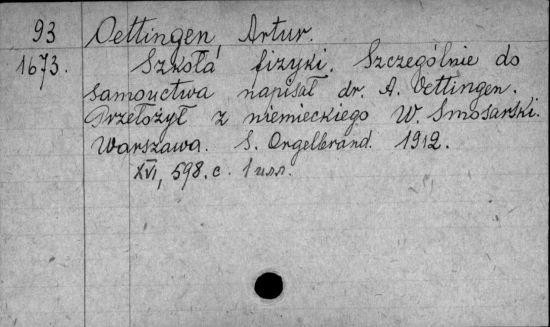 93 Oettingen, Artur.
1673. Szkoła fizyki. Szczególnie do
samouctwa napisał dr. A. Oettingen.
Przełożył z niemieckiego W. Smosarski.
Warszawa. S. Orgelbrand. 1912.
XVI, 598. с. 1 илл.